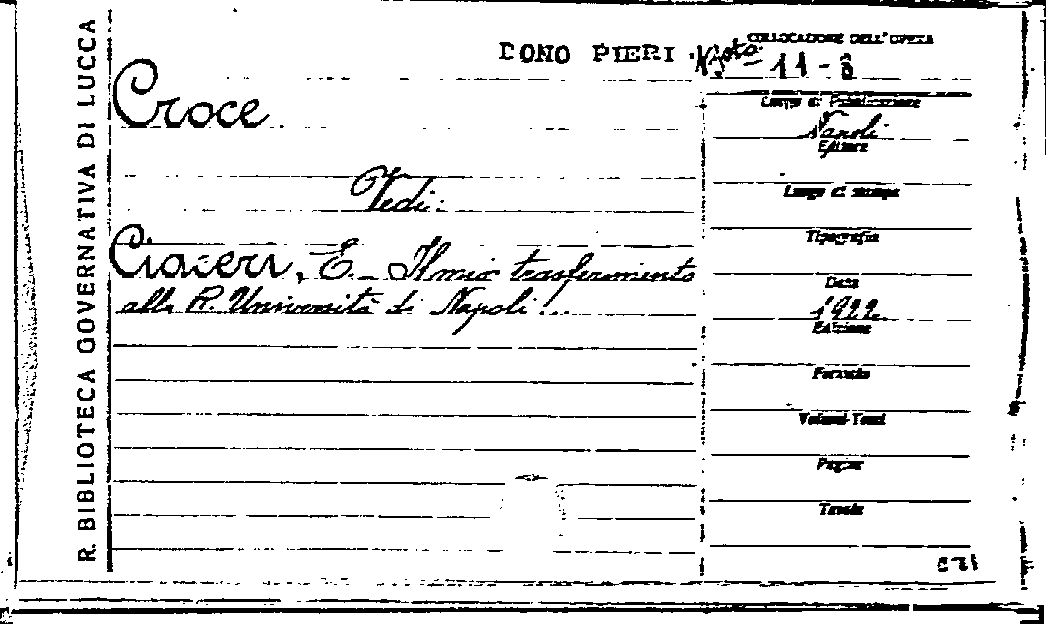 R. BIBLIOTECA GOVERNATIVA DI LUCCA
COLLOCAZIONE DELL'OPERA
DONO PIERI 11-8
Croce
Luogo di Pubblicazione
Napoli
Editore
Vedi:
Luogo di stampa
Tipografia
Ciaceri, E. - Il mio trasferimento
alla R. Università di Napoli!..
Data
1922
Edizione
Formato
Volumi-Tomi
Pagine
Tavole